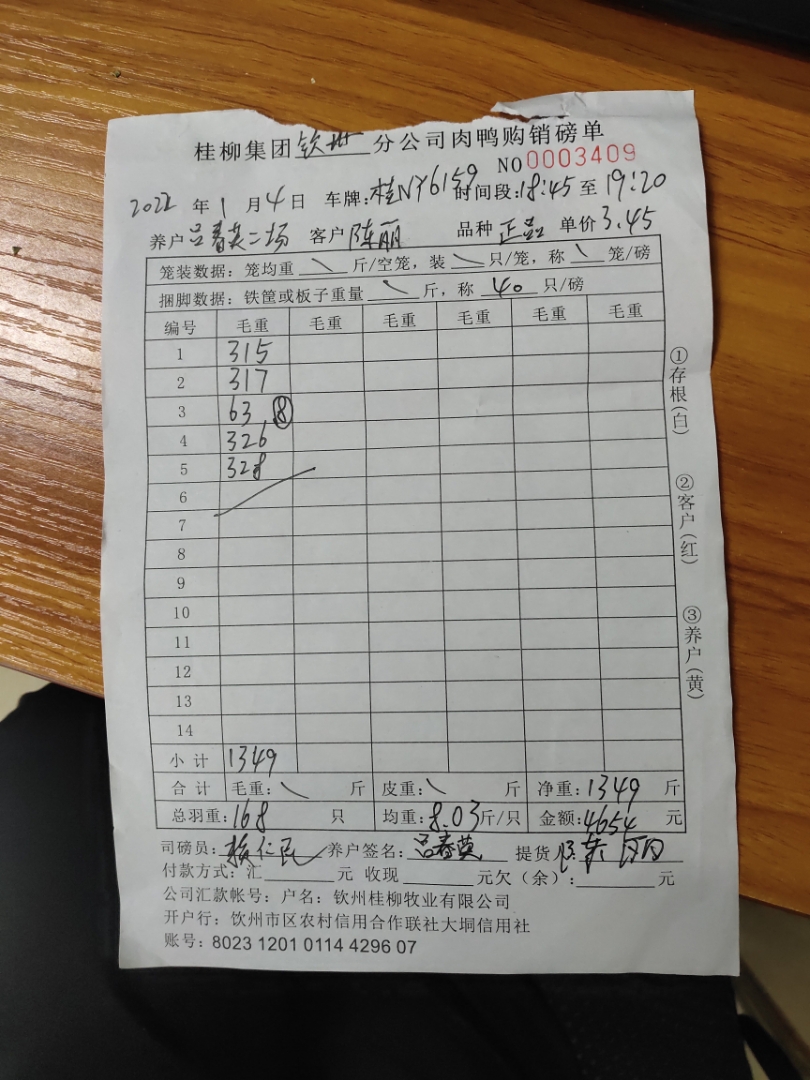 桂柳集团钦州分公司肉鸭购销磅单
NO0003409
2022年1月4日 车牌:桂NY6159 时间段:18:45至19:20
养户吕春英二场 客户陈丽 品种正品 单价3.45
笼装数据：笼均重\斤/空笼，装\只/笼，称\笼/磅
捆脚数据：铁筐或板子重量\斤，称40只/磅
编号 毛重 毛重 毛重 毛重 毛重 毛重
1 315
2 317
3 63 ⑧
4 326
5 328
6
7
8
9
10
11
12
13
14
小计 1349
合计 毛重:\斤 皮重:\斤 净重:1349斤
总羽重:168只 均重:8.03斤/只 金额:4654元
司磅员: 养户签名:吕春英 提货
付款方式:汇______元 收现______元欠（余）:______元
公司汇款帐号：户名：钦州桂柳牧业有限公司
开户行：钦州市区农村信用合作联社大垌信用社
账号：8023 1201 0114 4296 07
①存根(白)
②客户(红)
③养户(黄)